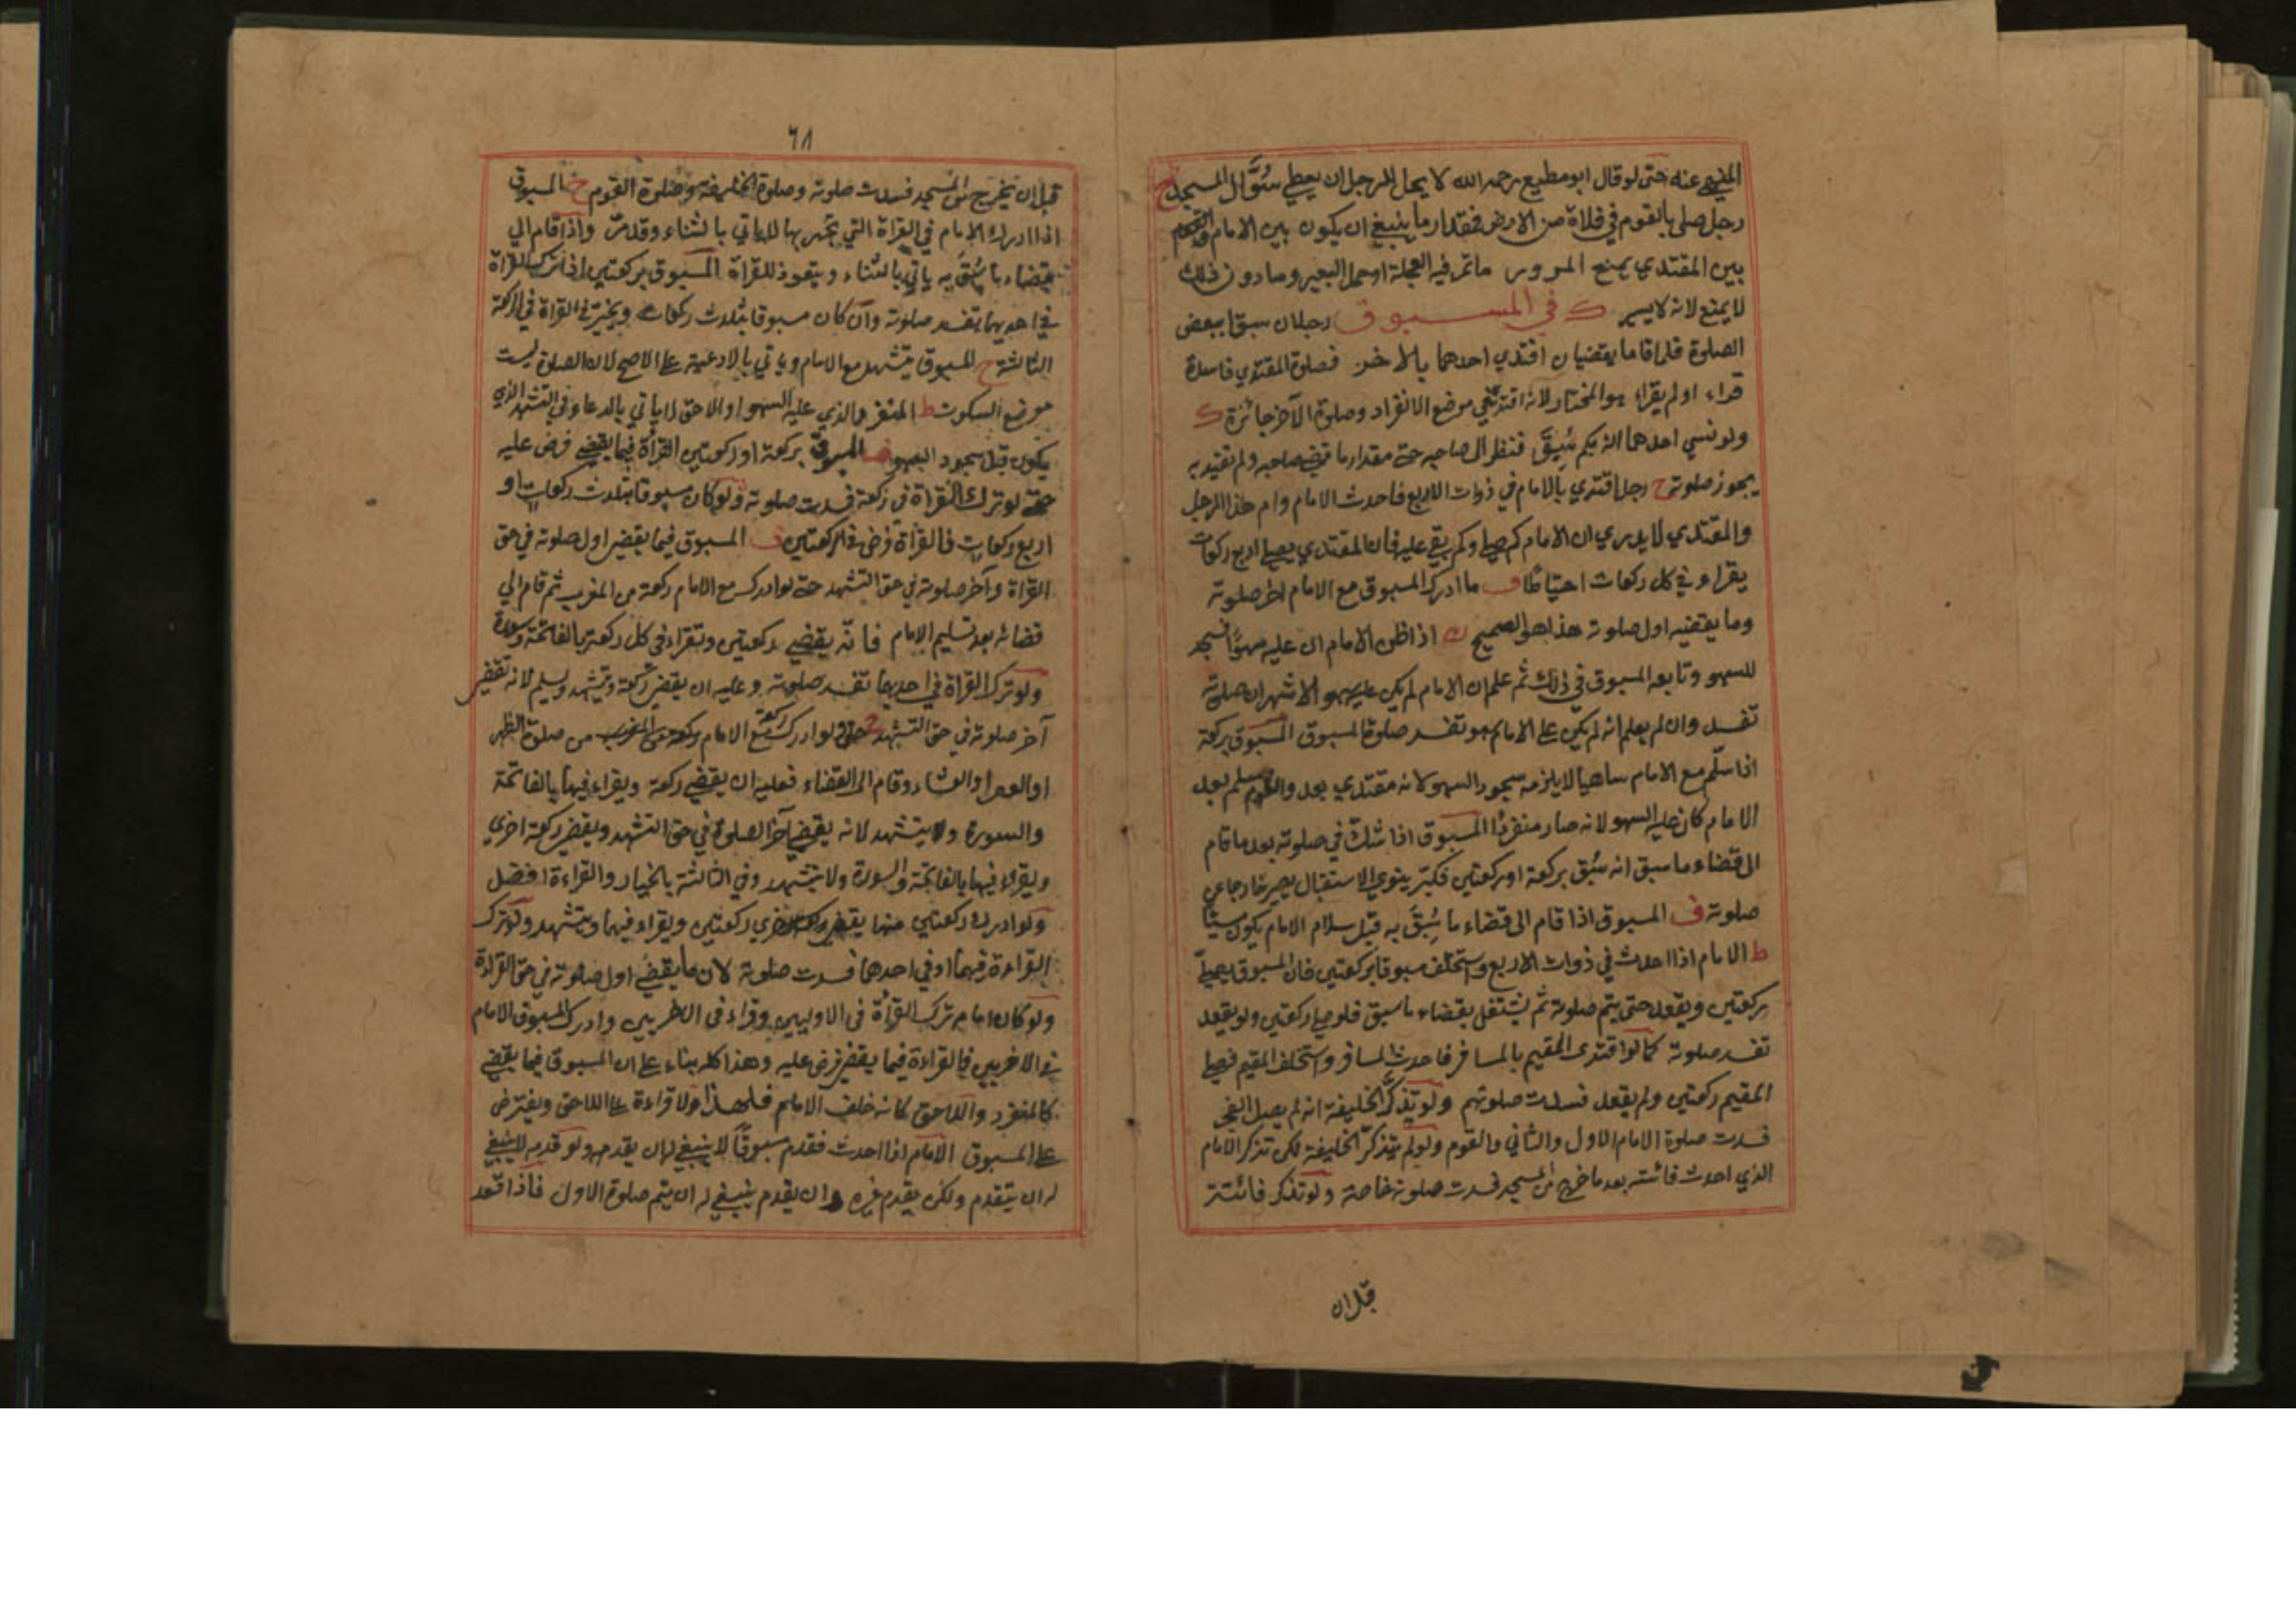 المنهي عنه حتى لو قال ابو مطيع رحمه الله لا يحل للرجل ان يعطي سُوَّال المسجد ح
رجل صلى بالقوم في فلاة من الارض فمقدار ما ينبغي ان يكون بين الامام والقوم
بين المقتدي يمنع المرور ما تمر فيه العجلة او حمل البعير وما دون ذلك
لا يمنع لانه لا يسير ك في المسبوق رجلان سبقا ببعض
الصلوة فلما قاما يقضيان اقتدي احدهما بالاخر فصلوة المقتدي فاسدة
قراء او لم يقراء هو المختار لانه اقتدي في موضع الانفراد وصلوة الآخر جائزة ك
ولو نسي احدهما انه بكم سُبِقَ فنظر الى صاحبه حتى مقدار ما قضى صاحبه ولم يقتد به
يجوز صلوته ح رجل اقتدي بالامام في ذوات الاربع فاحدث الامام وام هذا الرجل
والمقتدي لا يدري ان الامام كم صلي وكم بقي عليه فان المقتدي يصلي اربع ركعات
يقراء في كل ركعات احتياطًا ف ما ادرك المسبوق مع الامام اخر صلوته
وما يقضيه اول صلوته هذا هو الصحيح ك اذا ظن الامام ان عليه سهوًا فسجد
للسهو وتابعه المسبوق في ذلك ثم علم ان الامام لم يكن عليه سهو الاشهر ان صلوته
تفسد وان لم يعلم انه لم يكن على الامام سهو تفسد صلوة المسبوق المسبوق بركعة
اذا سلّم مع الامام ساهيا لا يلزمه سجود السهو لانه مقتدي بعد والقوم سلم بعد
الامام كان عليه السهو لانه صار منفردًا المسبوق اذا شكّ في صلوته بعد ما قام
الى قضاء ما سبق انه سُبق بركعة او ركعتين فكبّر ينوي الاستقبال يصير خارجا عن
صلوته ف المسبوق اذا قام الى قضاء ما سُبِقَ به قبل سلام الامام يكون مسيئًا
ط الامام اذا احدث في ذوات الاربع واستخلف مسبوقا بركعتين فان المسبوق يصلّي
ركعتين ويقعد حتى يتم صلوته ثم يشتغل بقضاء ما سبق فلو صلي ركعتين ولو يقعد
تفسد صلوته كما لو اقتدى المقيم بالمسافر فاحدث المسافر واستخلف المقيم فيصلي
المقيم ركعتين ولم يقعد فسدت صلوتهم ولو تذكّر الخليفة انه لم يصل الفجر
فسدت صلوة الامام الاول والثاني والقوم ولو لم يتذكّر الخليفة لكن تذكر الامام
الذي احدث فائتته بعد ما خرج من المسجد فسدت صلوته خاصة ولو تذكر فائتته
قبل ان
٦٨
قبل ان يخرج من المسجد فسدت صلوته وصلوة الخليفة وصلوة القوم ح المسبوق
اذا ادرك الامام في القراة التي يجهر بها لا ياتي بالثناء وقد مرّ واذا قام الى
قضاء ما سُبِقَ به ياتي بالثناء ويتعوذ للقراة المسبوق بركعتين اذا ترك القراة
في احديهما تفسد صلوته وان كان مسبوقا بثلاث ركعات ويخيّر في القراة في الركعة
الثالثة ح المسبوق يتشهد مع الامام وياتي بالادعية على الاصح لان الصلوة ليست
موضع السكوت ط المنفرد والذي عليه السهو او اللاحق لا ياتي بالدعاء في التشهد الذي
يكون قبل سجود السهو المسبوق بركعة او ركعتين القرأة فيما يقضي فرض عليه
حتى لو ترك القراة في ركعة فسدت صلوته ولو كان مسبوقا بثلاث ركعات او
اربع ركعات فالقراة فرض في الركعتين ف المسبوق فيما يقضي اول صلوته في حق
القراة وآخر صلوته في حق التشهد حتى لو ادرك مع الامام ركعة من المغرب ثم قام الي
قضائه بعد تسليم الامام فانّه يقضي ركعتين وتقراء في كل ركعة بالفاتحة وسورة
ولو ترك القراة في احديهما تفسد صلوته وعليه ان يقضي ركعة ويتشهد ويسلم لانه تقضى
آخر صلوته في حق التشهد ح ولو ادرك ركعة مع الامام من صلوة الظهر
او العصر او العشاء وقام الى القضاء فعليه ان يقضي ركعة ويقراء فيها بالفاتحة
والسورة ولا يتشهد لانه يقضي آخر الصلوة في حق التشهد ويقضي ركعة اخرى
ويقراء فيها بالفاتحة والسورة ولا يتشهد وفي الثالثة بالخيار والقراءة افضل
ولو ادرك ركعتين منها يقضي ركعتين ويقراء فيهما ويتشهد ولو ترك
القراءة فيهما او في احدهما فسدت صلوته لان ما يقضي اول صلوته في حق القراءة
ولو كان امام ترك القرأة في الاوليين وقراء في الاخريين وادرك المسبوق الامام
في الاخريين فالقراءة فيما يقضي فرض عليه وهذا كله بناء على ان المسبوق فيما يقضي
كالمنفرد واللاحق كانه خلف الامام فلهذا لا قراءة على اللاحق ويفترض
على المسبوق الامام اذا احدث فقدم مسبوقًا لا ينبغي له ان يقدمه ولو قدمه لا ينبغي
له ان يتقدم ولكن يقدم غيره وان يقدم ينبغي له ان يتم صلوة الاول فاذا قعد